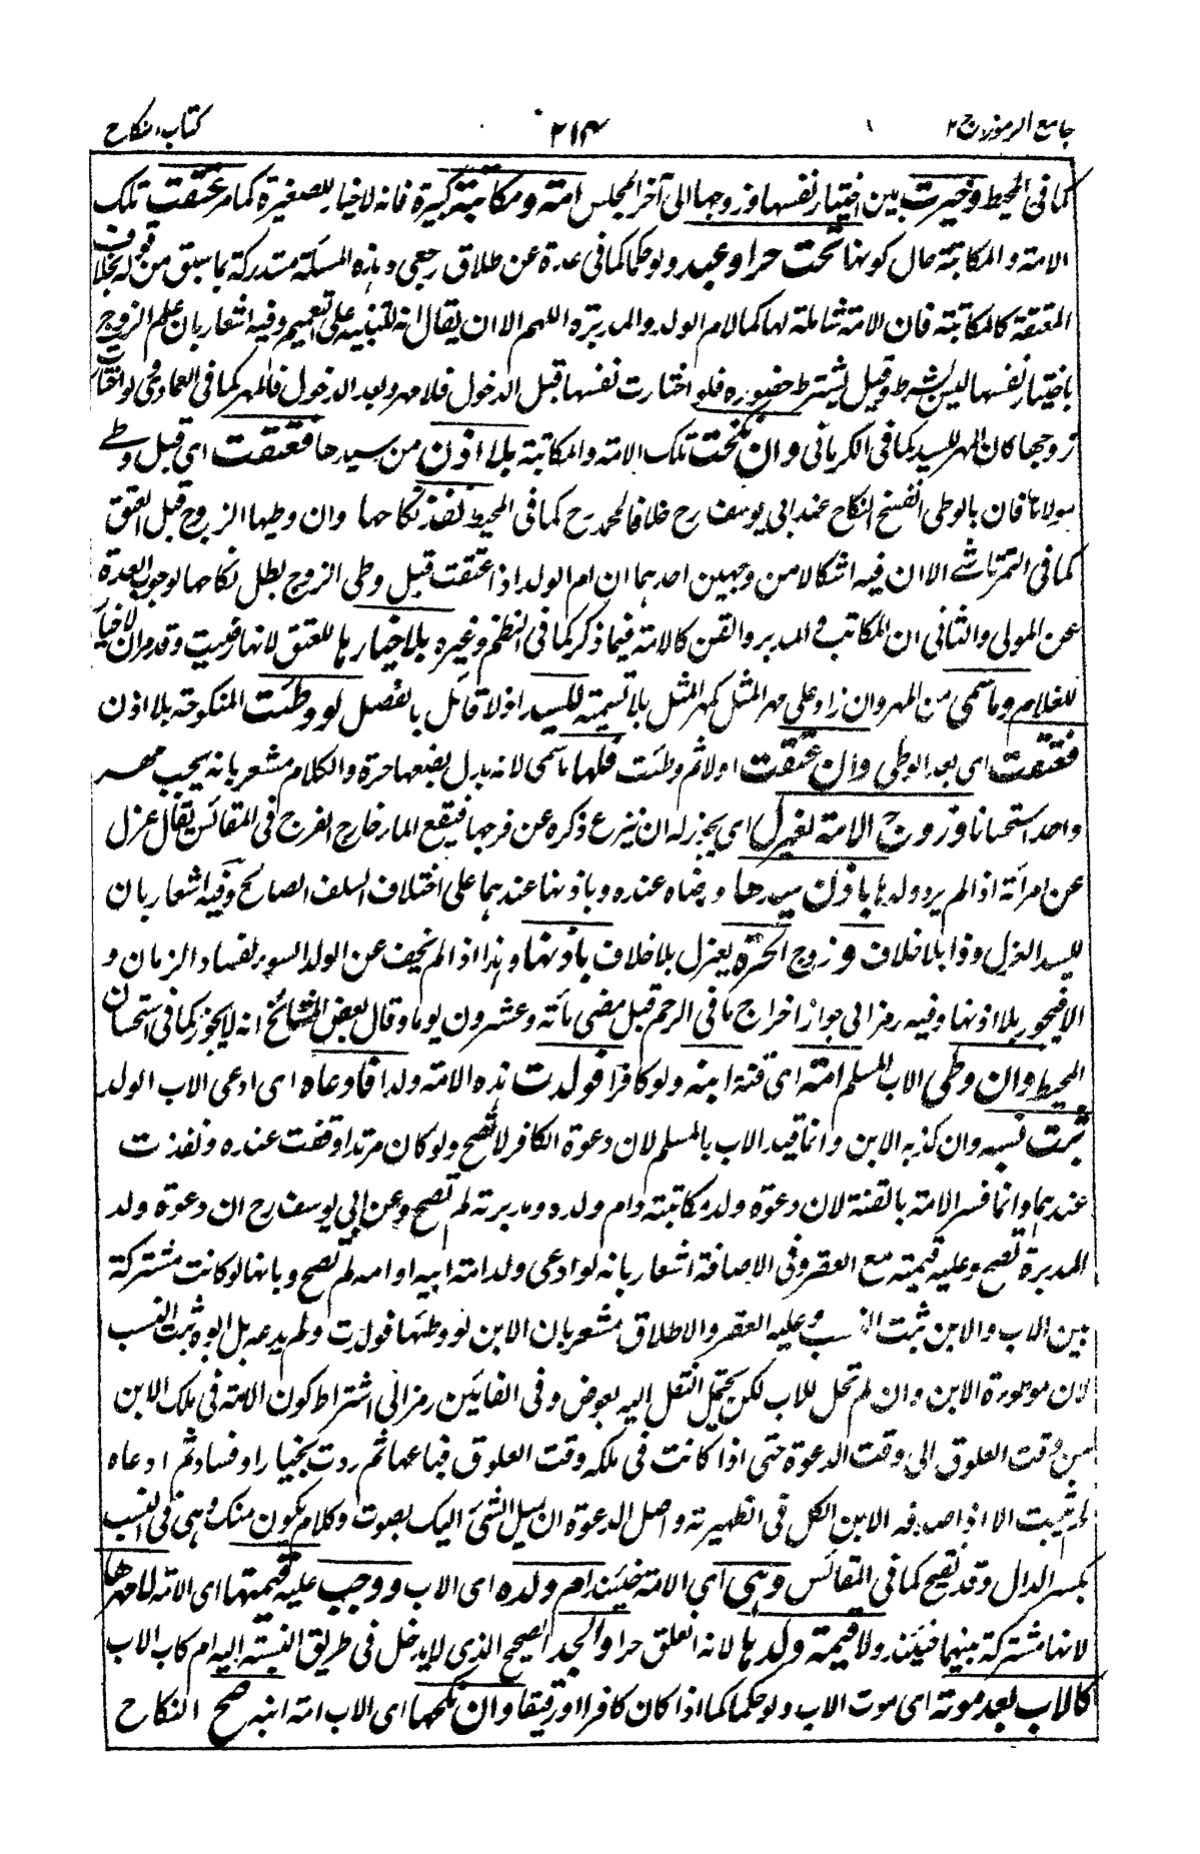 جامع الرموز ج ٢
٢١٤
كتاب النكاح
كما فى المحيط وخيرت بين اختيار نفسها وزوجها الى آخر المجلس امة ومكاتبة كبيرة فانه لا خيار للصغيرة كما مر عتقت تلك
الامة والمكاتبة حال كونها تحت حر او عبد ولو حكما كما فى عدة عن طلاق رجعى وهذه المسئلة مستدركة بما سبق من قوله بخلاف
المعتقة كالمكاتبة فان الامة شاملة لها كما لام الولد والمدبرة اللهم الا ان يقال انه للتنبيه على التعميم وفيه اشعار بان علم الزوج
باختيار نفسها ليس بشرط وقيل يشترط حضوره فلو اختارت نفسها قبل الدخول فلا مهر وبعد الدخول فالمهر كما فى العمادى ولو اختارت
زوجها كان المهر للسيد كما فى الكرمانى وان نكحت تلك الامة والمكاتبة بلا اذن من سيدها فعتقت اى قبل وطى
مولاها فان بالوطى انفسخ النكاح عند ابى يوسف رح خلافا لمحمد رح كما فى المحيط نفذ نكاحها وان وطيها الزوج قبل العتق
كما فى التمرتاشى الا ان فيه اشكالا من وجهين احدهما ان ام الولد اذا عتقت قبل وطى الزوج بطل نكاحها لوجوب العدة
عن المولى والثانى ان المكاتب و المدبر والقن كالامة فيما ذكر كما فى النظم وغيره بلا خيار لها للعتق لانها رضيت وقد مر ان لا خيار
للغلام وما سمى من المهر وان زاد على مهر المثل كمهر المثل بلا تسمية للسيد اذ لا قائل بالفصل لو وطئت المنكوحة بلا اذن
فعتقت اى بعد الوطى وان عتقت اولا ثم وطئت فلها ما سمى لانه بدل بضعها حرة والكلام مشعر بانه يجب مهر
واحد استحسانا وزوج الامة يعزل اى يجوز له ان ينزع ذكره عن فرجها فيقع الماء خارج الفرج فى المقائس يقال عزل
عن امرأته اذا لم يرد ولدها باذن سيدها ورضاه عنده وباذنها عندهما على اختلاف السلف الصالح وفيه اشعار بان
للسيد العزل وذا بلا خلاف و زوج الحرة يعزل بلا خلاف باذنها وهذا اذا لم يخف عن الولد السوء لفساد الزمان و
الا فيجوز بلا اذنها وفيه رمز الى جواز اخراج ما فى الرحم قبل مضى مائة وعشرون يوما وقال بعض المشائخ انه لا يجوز كما فى استحسان
المحيط وان وطى الاب المسلم امة اى قنة ابنه ولو كافرا فولدت هذه الامة ولدا فادعاه اى ادعى الاب الولد
ثبت نسبه وان كذبه الابن وانما قيد الاب بالمسلم لان دعوة الكافر لا تصح ولو كان مرتدا وقفت عنده ونفذت
عندهما وانما فسر الامة بالقنة لان دعوة ولد مكاتبته وام ولده ومدبرته لم تصح وعن ابى يوسف رح ان دعوة ولد
المدبرة تصح وعليه قيمته مع العقر وفى الاضافة اشعار بانه لو ادعى ولد امة ابيه او امه لم تصح وبانها لو كانت مشتركة
بين الاب والابن ثبت النسب وعليه العقر والاطلاق مشعر بان الابن لو وطئها فولدت ولم يدعه بل ابوه ثبت النسب
لان موطوءة الابن وان لم تحل للاب لكن يحتمل النقل اليه بعوض وفى الفائين رمز الى اشتراط كون الامة فى ملك الابن
من وقت العلوق الى وقت الدعوة حتى اذا كانت فى ملكه وقت العلوق فباعها ثم ردت بخيار او فساد ثم ادعاه
لم يثبت الا اذا صدقه الابن الكل فى الظهيرية واصل الدعوة ان يميل الشئ اليك بصوت وكلام يكون منك وهى فى النسب
بكسر الدال وقد تفتح كما فى المقائس وهى اى الامة حينئذ ام ولده اى الاب ووجب عليه قيمتها اى الامة لا مهرها
لانها مشتركة بينهما حينئذ ولا قيمة ولدها لانه انعلق حرا والجد الصحيح الذى لا يدخل فى طريق النسبة اليه ام كاب الاب
كالاب بعد موته اى موت الاب ولو حكما كما اذا كان كافرا او رقيقا وان نكحها اى الاب امة ابنه صح النكاح